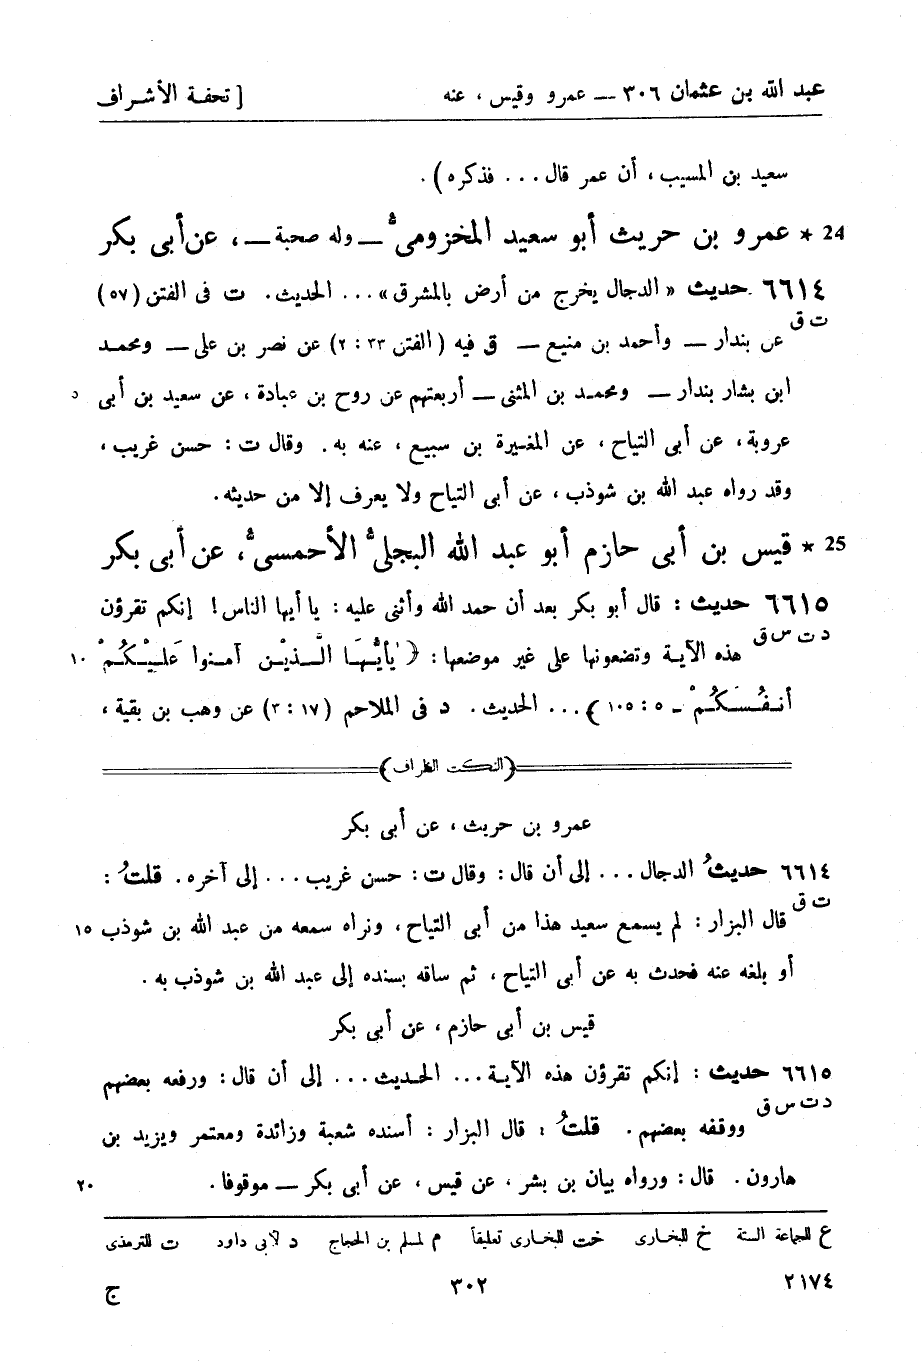 عبد الله بن عثمان ٣٠٦ — عمرو وقيس ، عنه [ تحفة الأشراف
سعيد بن المسيب ، أن عمر قال ... فذكره ) .
24 * عمرو بن حريث أبو سعيد المخزومىُّ — وله صحبة — ، عن أبى بكر
٦٦١٤ حديث « الدجال يخرج من أرض بالمشرق » ... الحديث . ت فى الفتن (٥٧)
ت ق
عن بندار — وأحمد بن منيع — ق فيه ( الفتن ٣٣ : ٢ ) عن نصر بن على — ومحمد
ابن بشار بندار — ومحمد بن المثنى — أربعتهم عن روح بن عبادة ، عن سعيد بن أبى ٥
عروبة ، عن أبى التياح ، عن المغيرة بن سبيع ، عنه به . وقال ت : حسن غريب ،
وقد رواه عبد الله بن شوذب ، عن أبى التياح ولا يعرف إلا من حديثه .
25 * قيس بن أبى حازم أبو عبد الله البجلىُّ الأحمسىُّ ، عن أبى بكر
٦٦١٥ حديث : قال أبو بكر بعد أن حمد الله وأثنى عليه : يا أيها الناس ! إنكم تقرؤن
د ت س ق
هذه الآية وتضعونها على غير موضعها : ﴿ يٰأَيُّهَا الَّذِيْنَ آمنوا عَلَيْكُمْ ١٠
أَنفُسَكُمْ ـ ٥ : ١٠٥ ﴾ ... الحديث . د فى الملاحم (١٧ : ٣) عن وهب بن بقية ،
(النكت الظراف)
عمرو بن حريث ، عن أبى بكر
٦٦١٤ حديثُ الدجال ... إلى أن قال : وقال ت : حسن غريب ... إلى آخره . قلتُ :
ت ق
قال البزار : لم يسمع سعيد هذا من أبى التياح ، ونراه سمعه من عبد الله بن شوذب ١٥
أو بلغه عنه فحدث به عن أبى التياح ، ثم ساقه بسنده إلى عبد الله بن شوذب به .
قيس بن أبى حازم ، عن أبى بكر
٦٦١٥ حديث : إنكم تقرؤن هذه الآية ... الحديث ... إلى أن قال : ورفعه بعضهم
د ت س ق
ووقفه بعضهم . قلتُ : قال البزار : أسنده شعبة وزائدة ومعتمر ويزيد بن
هارون . قال : ورواه بيان بن بشر ، عن قيس ، عن أبى بكر — موقوفا . ٢٠
ع للجماعة الستة خ للبخارى خت للبخارى تعليقاً م لمسلم بن الحجاج د لابى داود ت للترمذى
٢١٧٤ ٣٠٢ ج